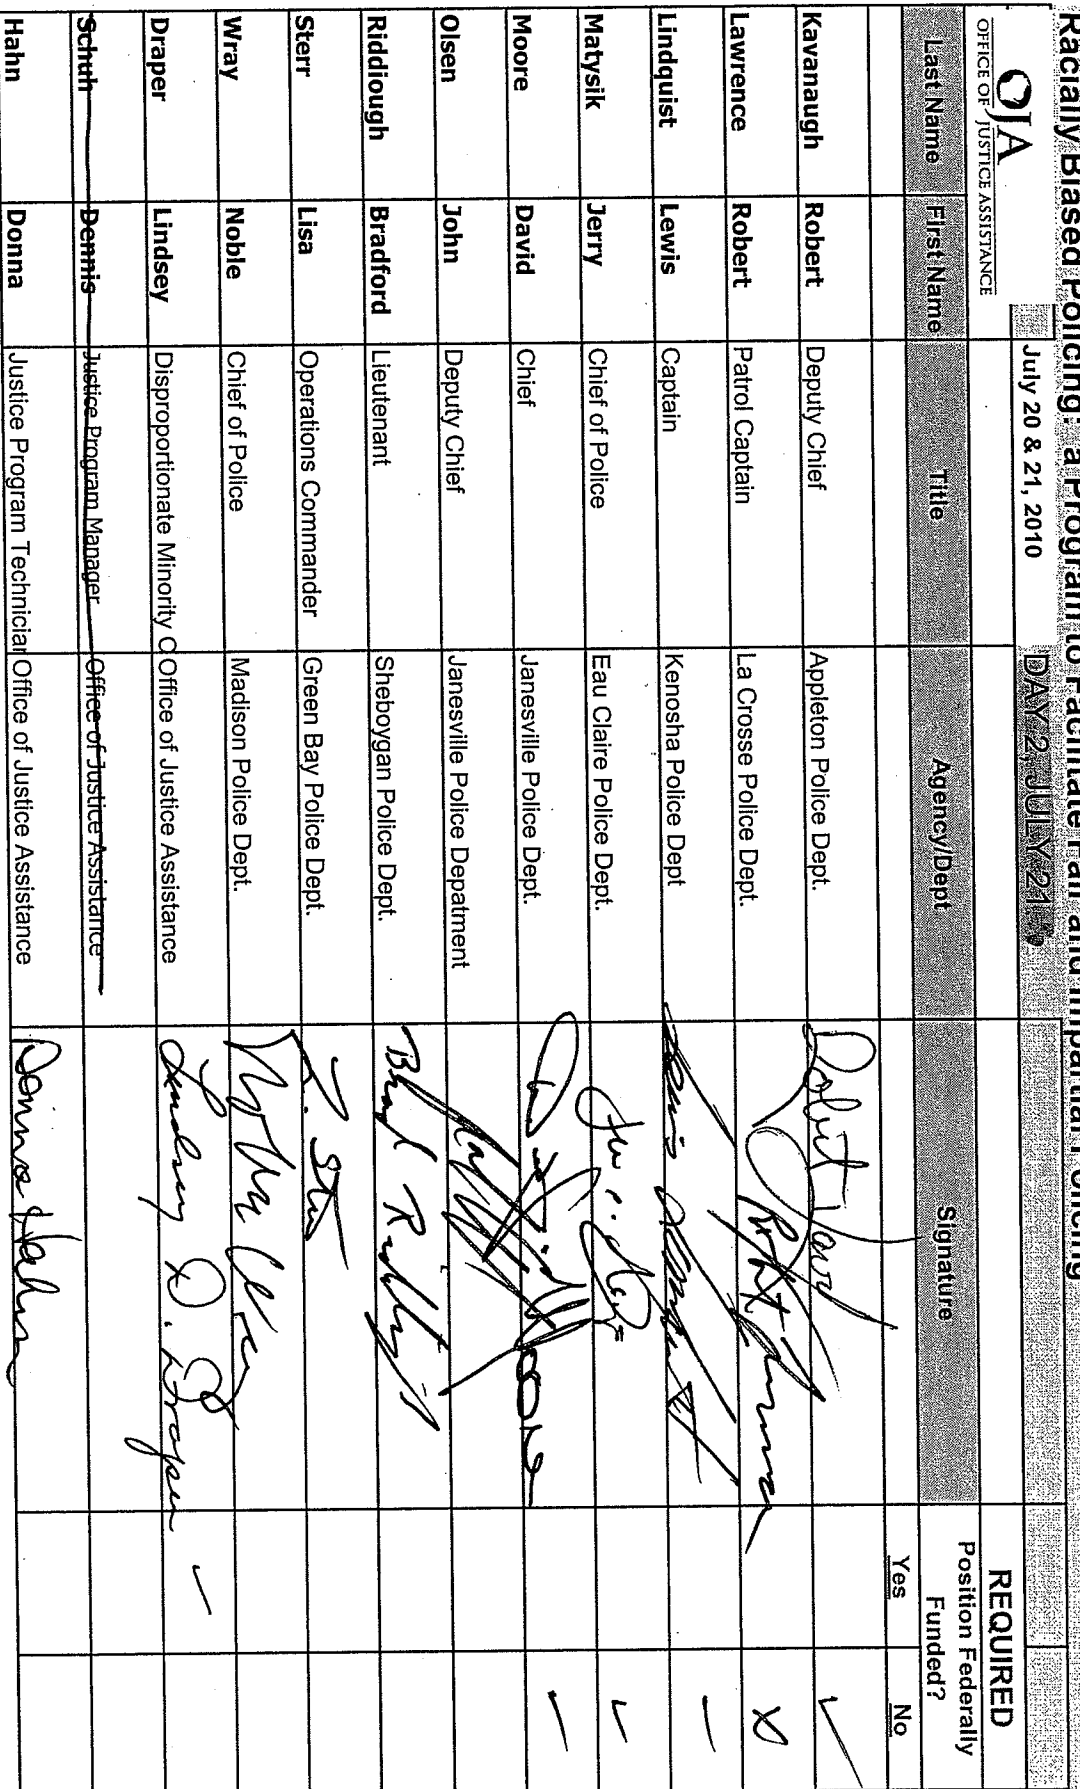 Racially Biased Policing: a Program to Facilitate Fair and Impartial Policing
OJA
OFFICE OF JUSTICE ASSISTANCE
July 20 & 21, 2010 DAY 2, JULY 21
REQUIRED
Position Federally
Funded?
Last Name First Name Title Agency/Dept Signature
Yes No
Kavanaugh Robert Deputy Chief Appleton Police Dept. Robert
Lawrence Robert Patrol Captain La Crosse Police Dept.
Lindquist Lewis Captain Kenosha Police Dept
Matysik Jerry Chief of Police Eau Claire Police Dept.
Moore David Chief Janesville Police Dept.
Olsen John Deputy Chief Janesville Police Depatment
Riddiough Bradford Lieutenant Sheboygan Police Dept.
Sterr Lisa Operations Commander Green Bay Police Dept.
Wray Noble Chief of Police Madison Police Dept.
Draper Lindsey Disproportionate Minority C Office of Justice Assistance Lindsey D. Draper
Schuh Dennis Justice Program Manager Office of Justice Assistance
Hahn Donna Justice Program Technician Office of Justice Assistance Donna Hahn